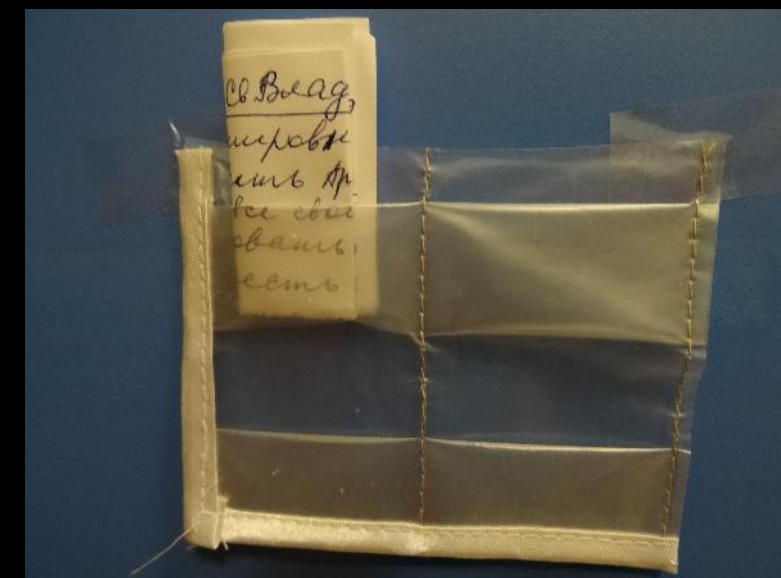 Св Влад,
шировн
ешь Ар
все свое
овать,
есть